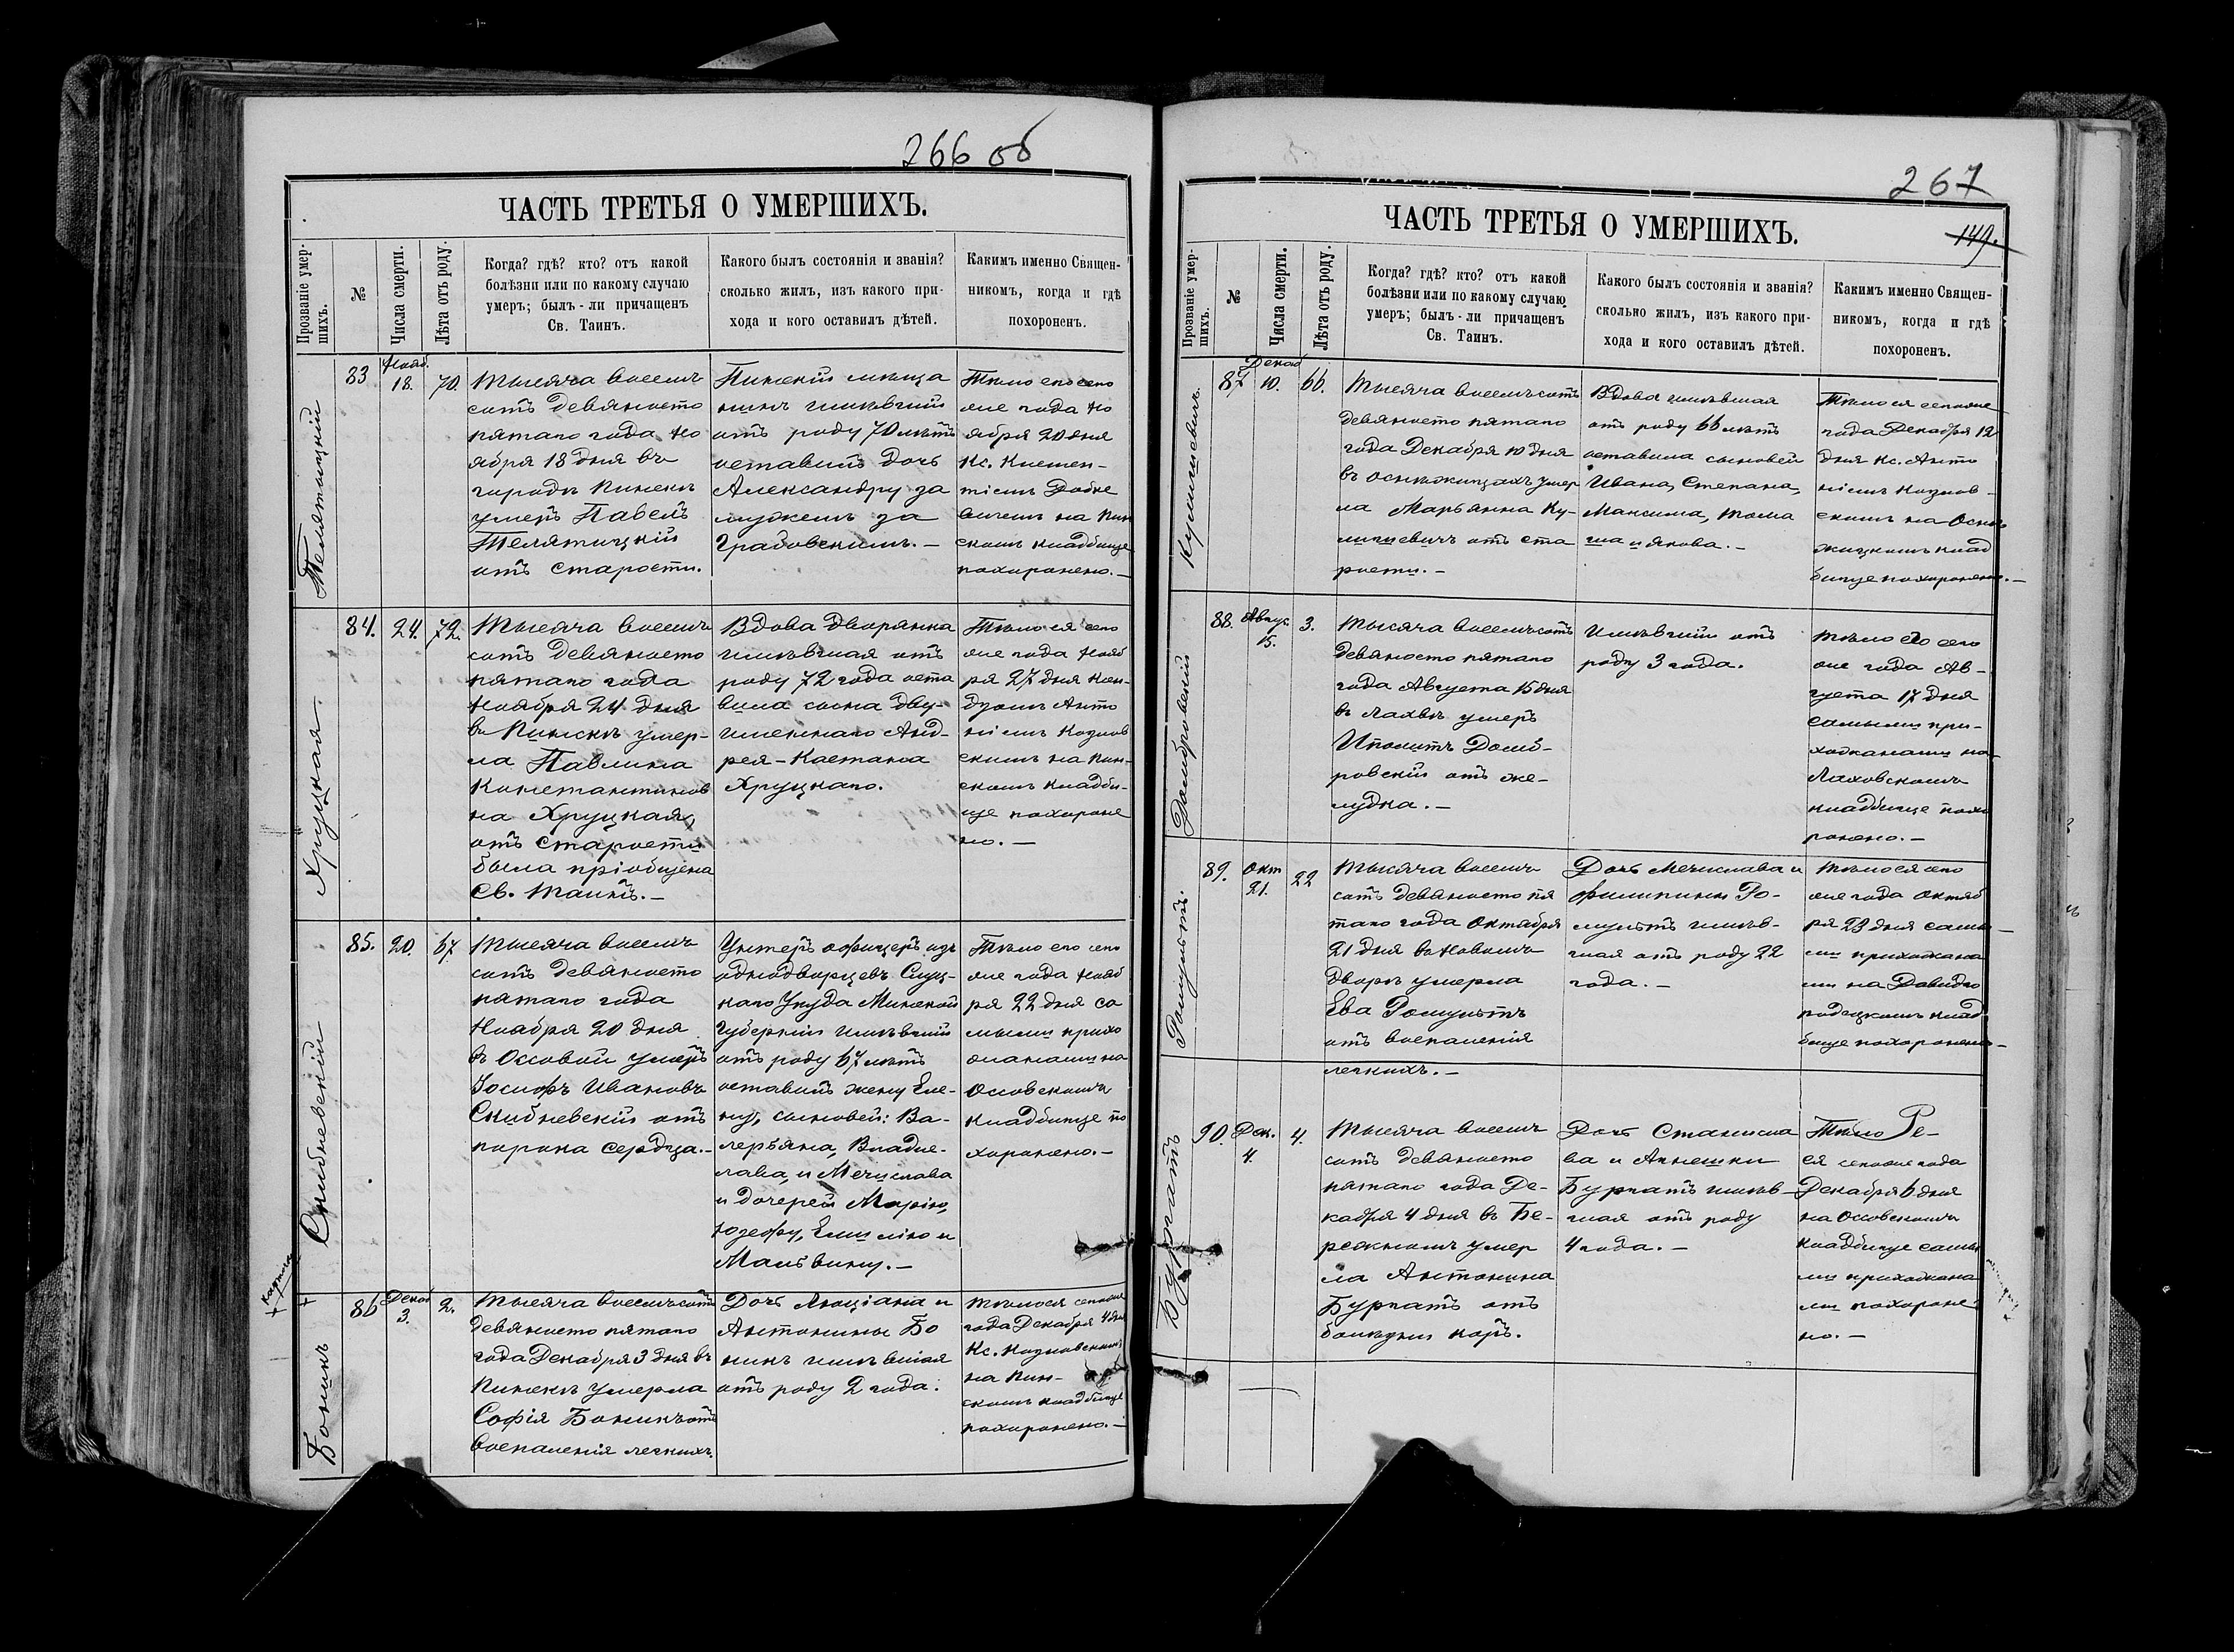 266 об
ЧАСТЬ ТРЕТЬЯ О УМЕРШИХЪ.
Прозваніе умер-
шихъ.
№
Числа смерти.
Лѣта отъ роду.
Когда? гдѣ? кто? отъ какой
болѣзни или по какому случаю
умеръ; былъ-ли причащенъ
Св. Таинъ.
Какого былъ состоянія и званія?
сколько жилъ, изъ какого при-
хода и кого оставилъ дѣтей.
Какимъ именно Священ-
никомъ, когда и гдѣ
похороненъ.
Телятыцкій
83
Нояб.
18.
70.
Тысяча восемь
сотъ девяносто
пятаго года Но
ября 18 дня въ
городѣ Пинскѣ
умеръ Павелъ
Телятицкій
отъ старости.
Пинскій мѣща
нинъ имѣвшій
отъ роду 70 лѣтъ
оставилъ дочь
Александру за
мужемъ за
Грабовскимъ.—
Тѣло его сего
же года Но
ября 20 дня
Кс. Клемен-
тіемъ
на Пин
скомъ кладбище
похоронено.—
Хруцкая
84.
24.
72.
Тысяча восемь
сотъ девяносто
пятаго года
Ноября 24 дня
въ Пинскѣ умер-
ла Павлина
Константинов
на Хруцкая
отъ старости
была пріобщена
Св. Таинъ.—
Вдова дворянка
имѣвшая отъ
роду 72 года оста
вила сына дву-
именнаго Анд-
рея-Каетана
Хруцкаго.
Тѣло ея сего
же года Нояб
ря 27 дня Ксен-
дзомъ Анто
ніемъ Козлов
скимъ на Пин-
скомъ кладби-
ще похороне
но.—
Скибневскій
85.
20.
67.
Тысяча восемь
сотъ девяносто
пятаго года
Ноября 20 дня
въ Оссовой умеръ
Іосифъ Ивановъ
Скибневскій отъ
порока сердца.—
Унтеръ офицеръ изъ
однодворцевъ Слуц-
каго Уѣзда Минской
Губерніи имѣвшій
отъ роду 67 лѣтъ
оставилъ жену Еле-
ну, сыновей: Ва-
лерьяна, Владис-
лава, и Мечислава
и дочерей Марію,
Юзефу, Емилію и
Мальвину.—
Тѣло его сего
же года Нояб
ря 22 дня са
мыми прихо
жанами на
Оссовскомъ
кладбище по
хоронено.—
Бонинъ
86
Декаб
3.
2.
Тысяча восемьсотъ
девяносто пятаго
года Декабря 3 дня въ
Пинскѣ умерла
Софія Бонинъ отъ
воспаленія легкихъ.
Дочь Люціана и
Антонины Бо
нинъ имѣвшая
отъ роду 2 года.
Тѣло ея сего же
года Декабря 4 дня
Кс. Козловскимъ
на Пин-
скомъ кладбище
похоронено.—
267
149.
ЧАСТЬ ТРЕТЬЯ О УМЕРШИХЪ.
Прозваніе умер-
шихъ.
№
Числа смерти.
Лѣта отъ роду.
Когда? гдѣ? кто? отъ какой
болѣзни или по какому случаю
умеръ; былъ-ли причащенъ
Св. Таинъ.
Какого былъ состоянія и званія?
сколько жилъ, изъ какого при-
хода и кого оставилъ дѣтей.
Какимъ именно Священ-
никомъ, когда и гдѣ
похороненъ.
Кулишевичъ.
87
Декаб
10.
66.
Тысяча восемьсотъ
девяносто пятаго
года Декабря 10 дня
въ Оснѣжицахъ умер
ла Марьянна Ку-
лишевичъ отъ ста
рости.—
Вдова имѣвшая
отъ роду 66 лѣтъ
оставила сыновей
Ивана, Степана,
Максима, Тома
ша и Якова.—
Тѣло ея сего же
года Декабря 12
дня Кс. Анто
ніемъ Козлов-
скимъ на Оснѣ
жицкомъ клад
бище похоронено.—
Домбровскій
88.
Авгус
15.
3.
Тысяча восемьсотъ
девяносто пятаго
года Августа 15 дня
въ Лахвѣ умеръ
Иполитъ Домб-
ровскій отъ же-
лудка.—
Имѣвшій отъ
роду 3 года.
Тѣло его сего
же года Ав-
густа 17 дня
самыми при-
хожанами на
Лаховскомъ
кладбище похо
ронено.—
Ромультъ.
89.
Окт
21.
22
Тысяча восемь
сотъ девяносто пя
таго года Октября
21 дня въ Новомъ
Дворѣ умерла
Ева Ромультъ
отъ воспаленія
легкихъ.—
Дочь Мечислава и
Филипины Ро-
мультъ имѣв-
шая отъ роду 22
года.—
Тѣло ея сего
же года Октяб
ря 23 дня самы-
ми прихожана
ми на Давидго
родецкомъ клад
бище похоронено—
Бургатъ
90.
Дек.
4.
4.
Тысяча восемь
сотъ девяносто
пятаго года Де-
кабря 4 дня въ Бе-
режномъ умер
ла Антонина
Бургатъ отъ
болѣзни корь.
Дочь Станисла
ва и Агнешки
Бургатъ имѣв-
шая отъ роду
4 года.—
Тѣло
ея сего же года
Декабря 6 дня
на Оссовскомъ
кладбище самы
ми прихожана
ми похороне
но.—